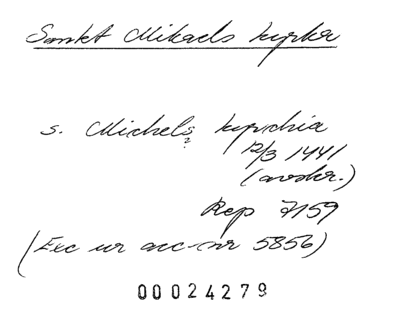 Sankt Mikaels kyrka
s. Michels kyrchia
?
12/3 1441
(avskr.)
Rep 7159
(Exc ur acc-nr 5856)
00024279